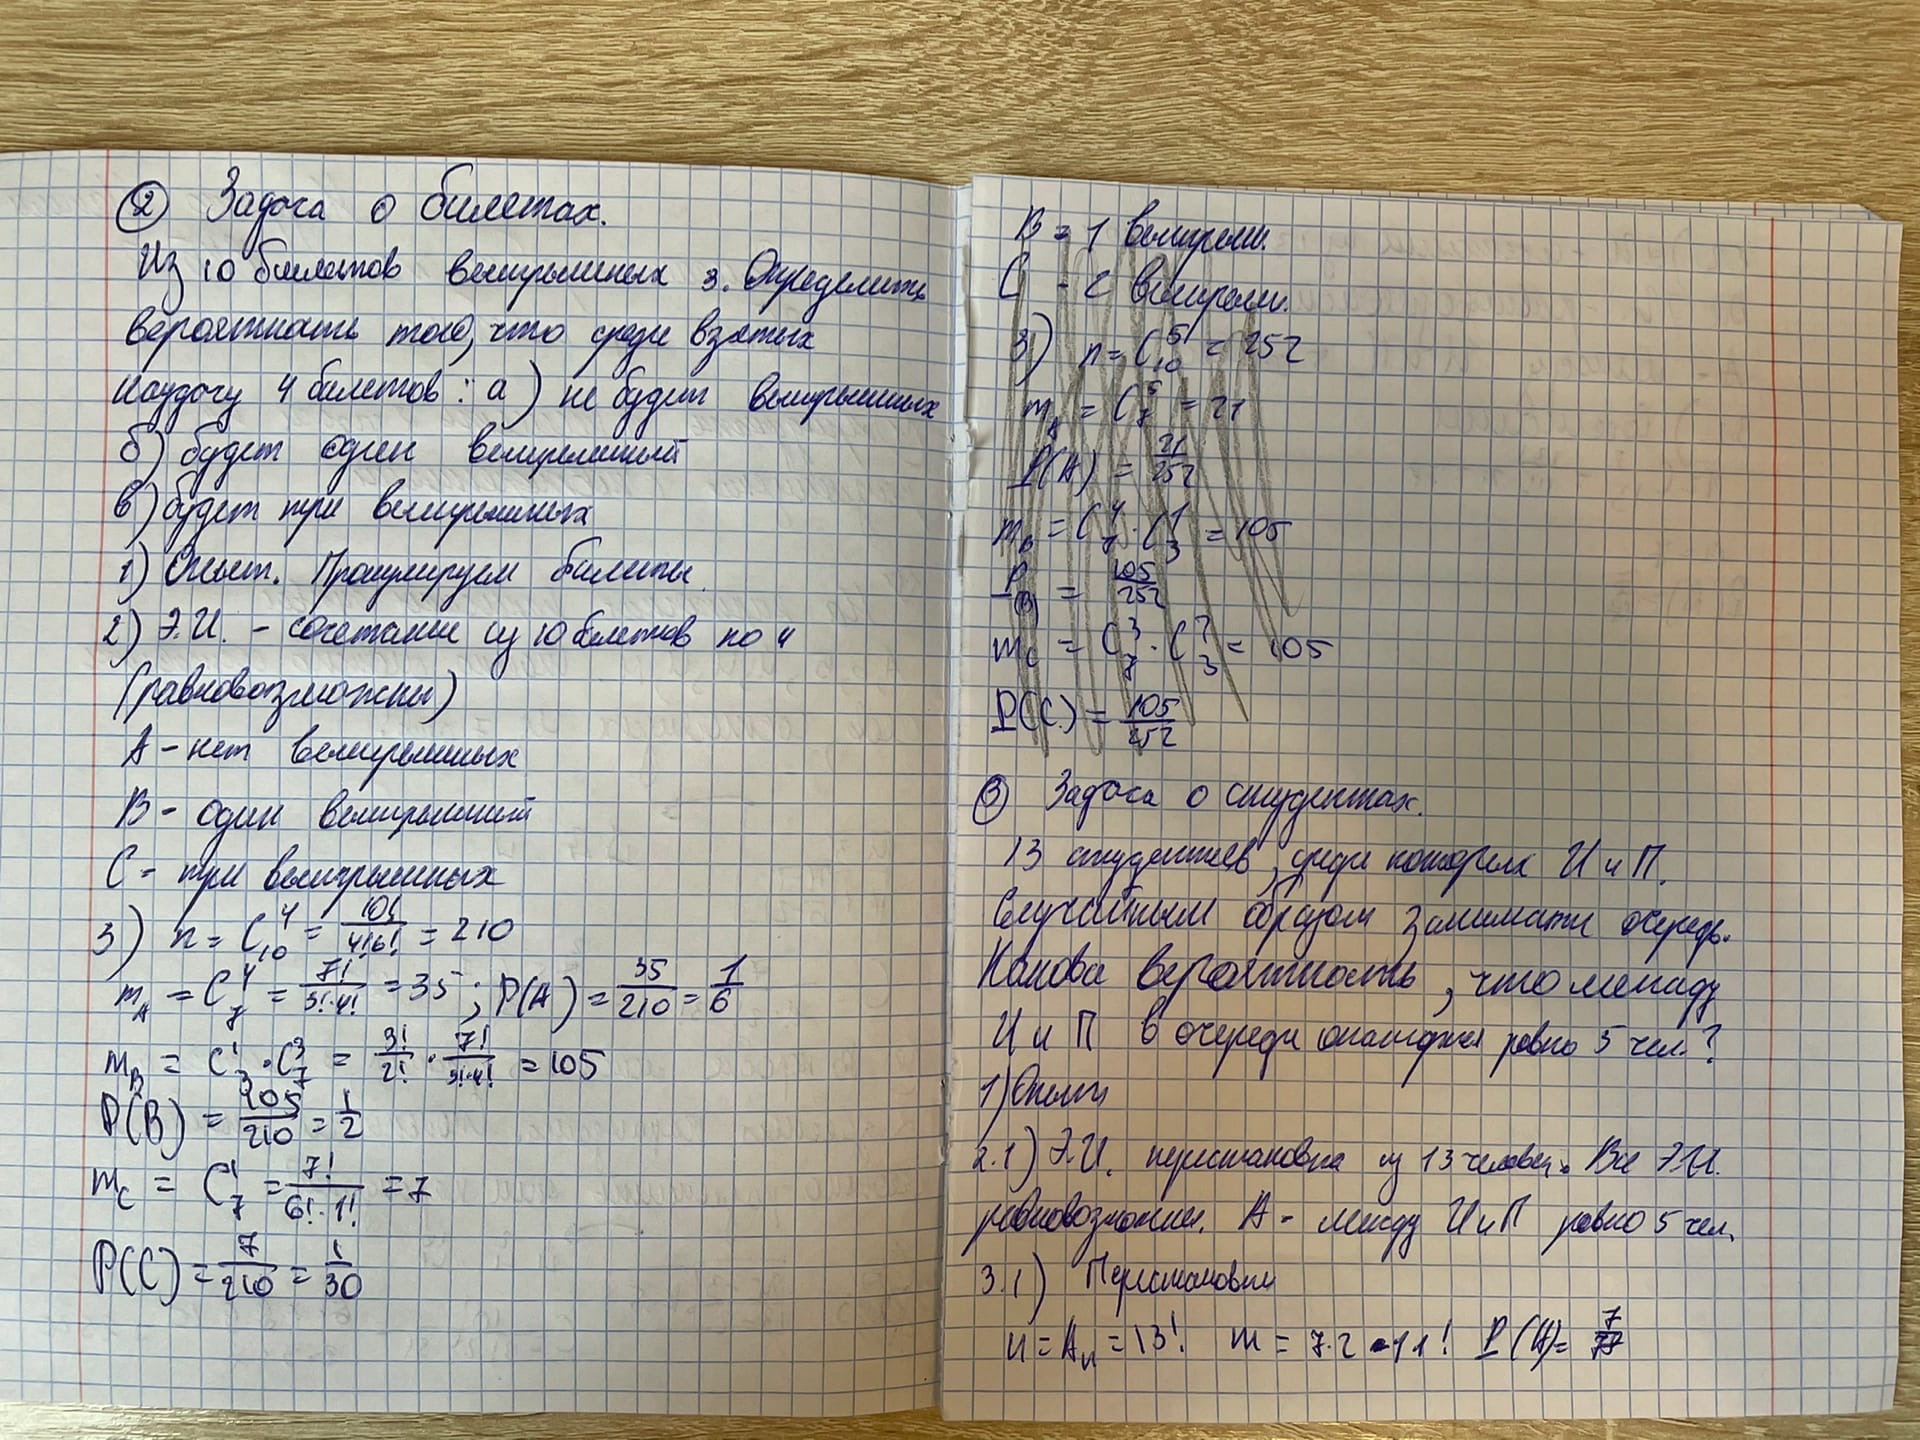 ② Задача о билетах.
Из 10 билетов выигрышных 3. Определить
вероятность того, что среди взятых
наудачу 4 билетов: а) не будет выигрышных
б) будет один выигрышный
в) будет три выигрышных
1) Опыт. Пронумеруем билеты.
2) Э.И. - сочетание из 10 билетов по 4
(равновозможны)
А - нет выигрышных
В - один выигрышный
С - три выигрышных
3) n = C₁₀⁴ = 10!/4!6! = 210
m_A = C₇⁴ = 7!/3!·4! = 35; P(A) = 35/210 = 1/6
m_B = C₃¹ · C₇³ = 3!/2! · 7!/3!·4! = 105
P(B) = 105/210 = 1/2
m_C = C₇¹ = 7!/6!·1! = 7
P(C) = 7/210 = 1/30
В = 1 выигрыш.
С - 2 выигрыш.
3) n = C₁₀⁵ = 252
m_A = C₇⁵ = 21
P(A) = 21/252
m_B = C₇⁴ · C₃¹ = 105
P(B) = 105/252
m_C = C₇³ · C₃² = 105
P(C) = 105/252
③ Задача о студентах.
13 студентов, среди которых И и П.
Случайным образом занимают очередь.
Какова вероятность, что между
И и П в очереди окажется ровно 5 чел.?
1) Опыт
2.1) Э.И. перестановка из 13 человек. Все Э.И.
равновозможны. А - между И и П ровно 5 чел.
3.1) Перестановки
n = Aₙ = 13! m = 7·2·11! P(A) = 7/